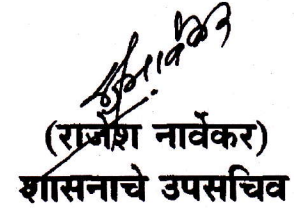 (राजेश नार्वेकर)
शासनाचे उपसचिव